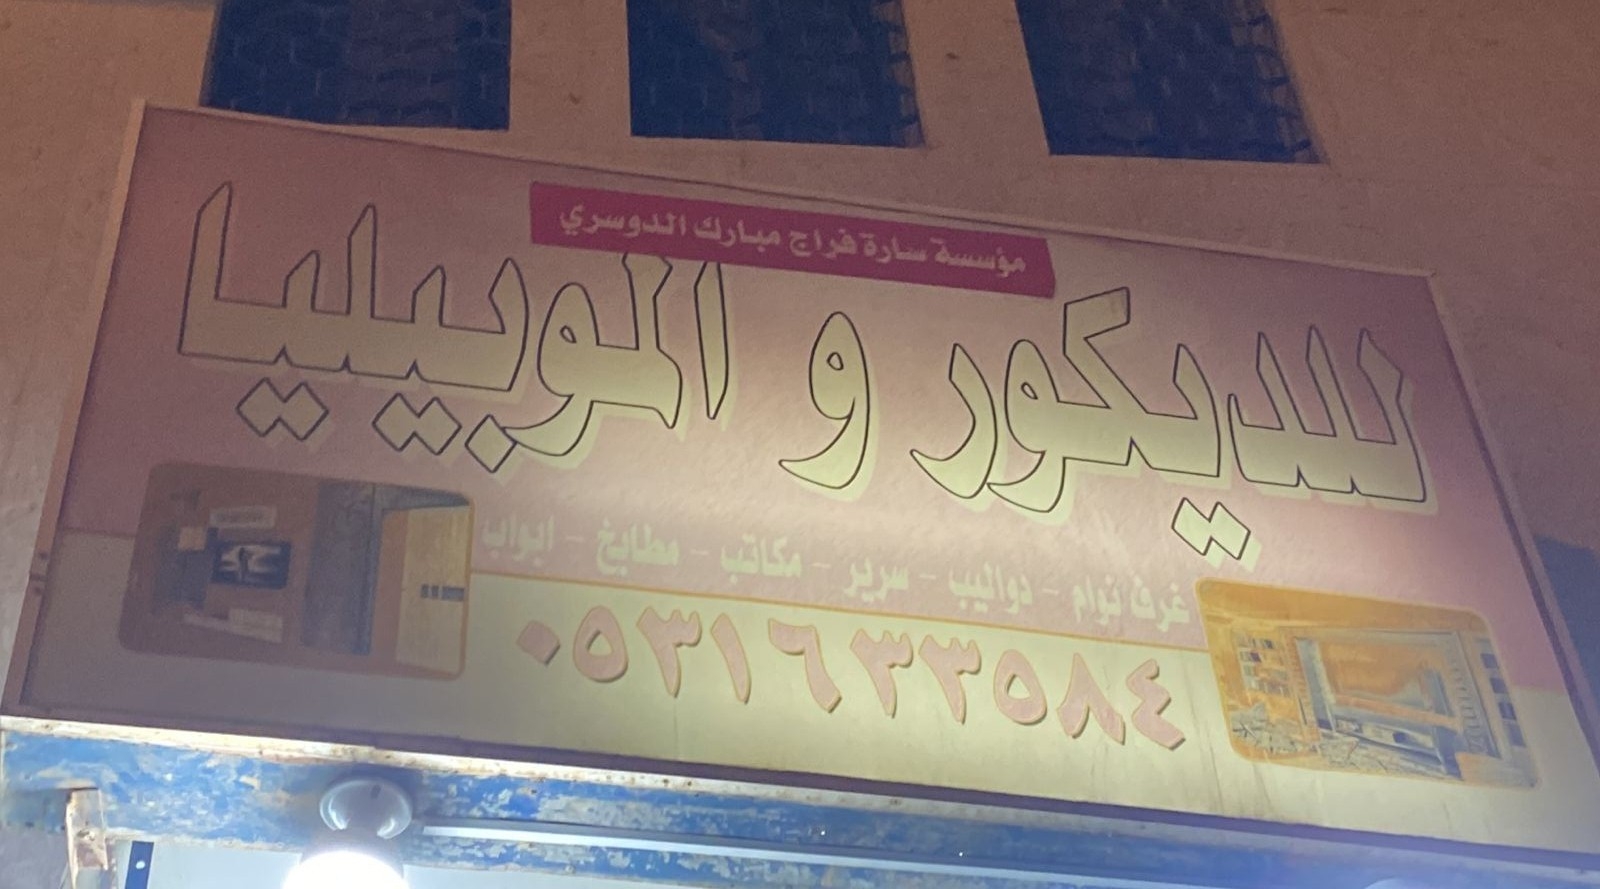 مؤسسة سارة فراج مبارك الدوسري
للديكور و الموبيليا
غرف نوام - دواليب - سرير - مكاتب - مطابخ - ابواب
٠٥٣١٦٣٣٥٨٤